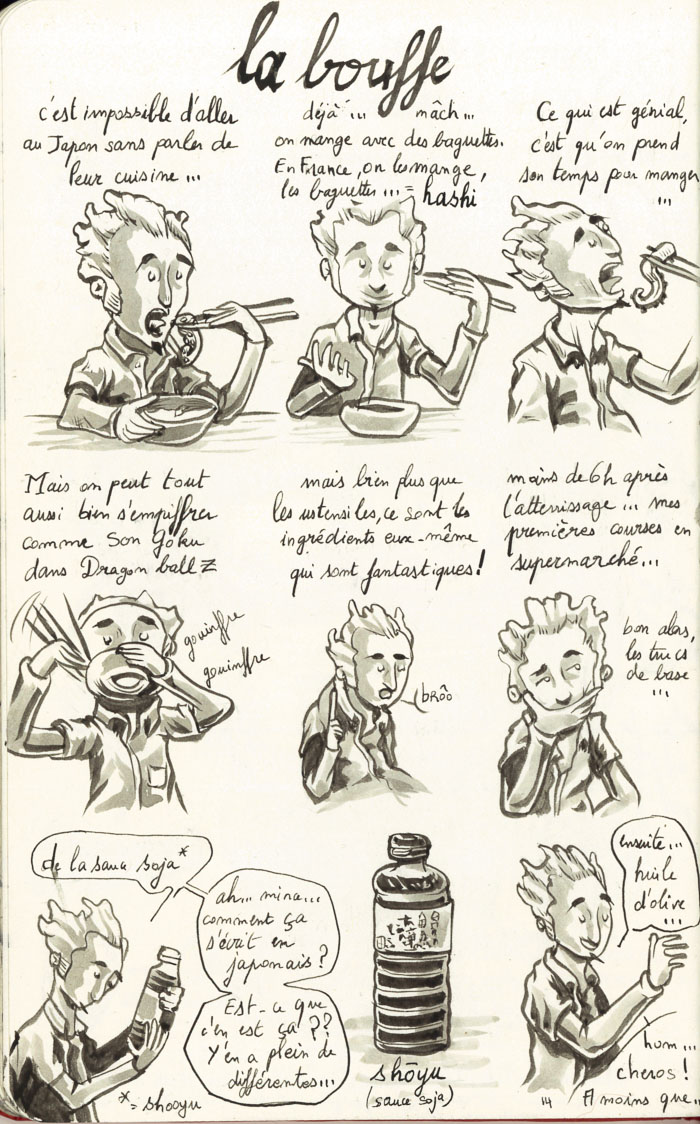 la bouffe
c'est impossible d'aller
au Japon sans parler de
leur cuisine ...
déjà ... mâch ...
on mange avec des baguettes.
En France, on les mange,
les baguettes ... = hashi
Ce qui est génial,
c'est qu'on prend
son temps pour manger
...
Mais on peut tout
aussi bien s'empiffrer
comme Son Gōku
dans Dragon ball Z
gouinffre
gouinffre
mais bien plus que
les ustensiles, ce sont les
ingrédients eux-même
qui sont fantastiques!
brôo
moins de 6h après
l'atterrissage ... mes
premières courses en
supermarché...
bon alors,
les trucs
de base
...
de la sauce soja*
ah... mina...
comment ça
s'écrit en
japonais?
Est-ce que
c'en est ça ??
Y'en a plein de
différentes...
* = shooyu
shōyu
(sauce soja)
ensuite...
huile
d'olive
...
hom...
cheros!
14 A moins que...